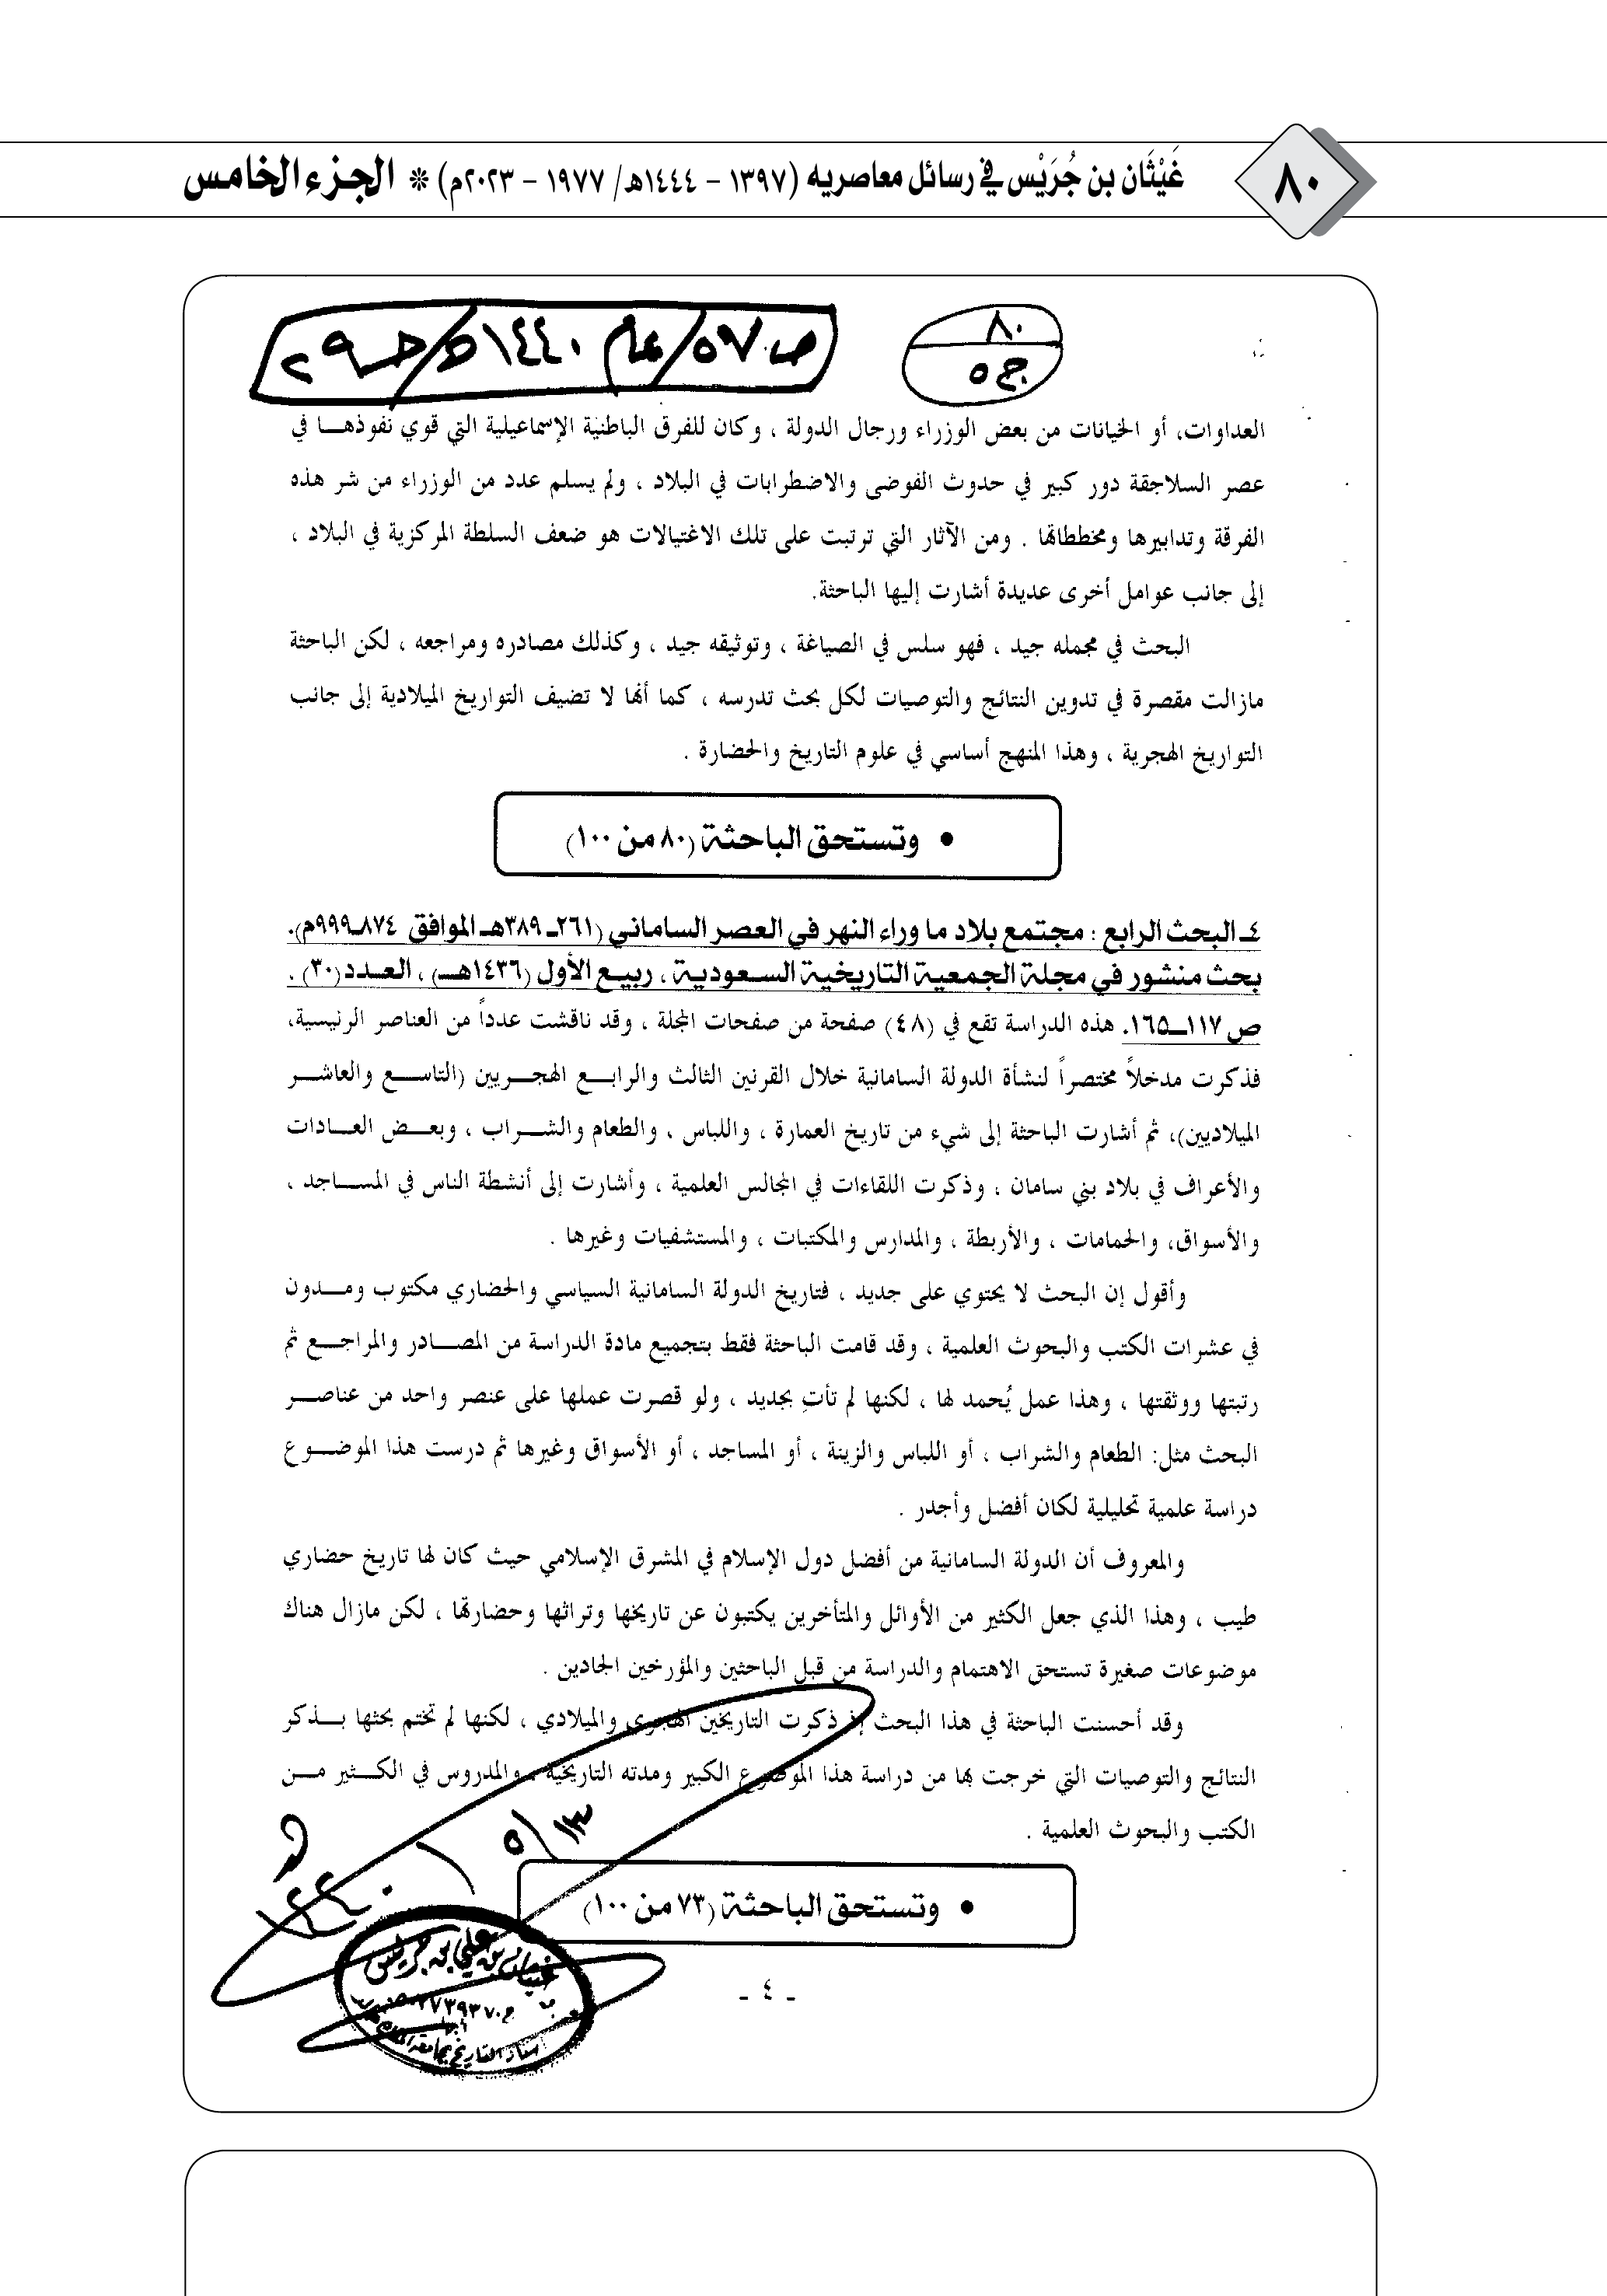 ٨٠
غَيْثَان بن جُرَيْس في رسائل معاصريه (١٣٩٧ - ١٤٤٤هـ/ ١٩٧٧ - ٢٠٢٣م) * الجزء الخامس
٨٠
ج٥
ص٥٧/ عام ١٤٤٠هـ/ حـ ٢٩
العداوات، أو الخيانات من بعض الوزراء ورجال الدولة ، وكان للفرق الباطنية الإسماعيلية التي قوي نفوذهـا في
عصر السلاجقة دور كبير في حدوث الفوضى والاضطرابات في البلاد ، ولم يسلم عدد من الوزراء من شر هذه
الفرقة وتدابيرها ومخططاتها . ومن الآثار التي ترتبت على تلك الاغتيالات هو ضعف السلطة المركزية في البلاد ،
إلى جانب عوامل أخرى عديدة أشارت إليها الباحثة.
البحث في مجمله جيد ، فهو سلس في الصياغة ، وتوثيقه جيد ، وكذلك مصادره ومراجعه ، لكن الباحثة
مازالت مقصرة في تدوين النتائج والتوصيات لكل بحث تدرسه ، كما أنها لا تضيف التواريخ الميلادية إلى جانب
التواريخ الهجرية ، وهذا المنهج أساسي في علوم التاريخ والحضارة .
• وتستحق الباحثة (٨٠ من ١٠٠)
٤ـ البحث الرابع : مجتمع بلاد ما وراء النهر في العصر الساماني (٢٦١ـ ٣٨٩هـ الموافق ٨٧٤ـ٩٩٩م).
بحث منشور في مجلة الجمعية التاريخية السعودية ، ربيع الأول (١٤٣٦هـ) ، العدد (٣٠) ،
ص ١١٧ــ١٦٥. هذه الدراسة تقع في (٤٨) صفحة من صفحات المجلة ، وقد ناقشت عدداً من العناصر الرئيسية،
فذكرت مدخلاً مختصراً لنشأة الدولة السامانية خلال القرنين الثالث والرابـع الهجـريين (التاسـع والعاشـر
الميلاديين)، ثم أشارت الباحثة إلى شيء من تاريخ العمارة ، واللباس ، والطعام والشـراب ، وبعـض العـادات
والأعراف في بلاد بني سامان ، وذكرت اللقاءات في المجالس العلمية ، وأشارت إلى أنشطة الناس في المسـاجد ،
والأسواق، والحمامات ، والأربطة ، والمدارس والمكتبات ، والمستشفيات وغيرها .
وأقول إن البحث لا يحتوي على جديد ، فتاريخ الدولة السامانية السياسي والحضاري مكتوب ومـدون
في عشرات الكتب والبحوث العلمية ، وقد قامت الباحثة فقط بتجميع مادة الدراسة من المصـادر والمراجـع ثم
رتبتها ووثقتها ، وهذا عمل يُحمد لها ، لكنها لم تأتِ بجديد ، ولو قصرت عملها على عنصر واحد من عناصـر
البحث مثل: الطعام والشراب ، أو اللباس والزينة ، أو المساجد ، أو الأسواق وغيرها ثم درست هذا الموضـوع
دراسة علمية تحليلية لكان أفضل وأجدر .
والمعروف أن الدولة السامانية من أفضل دول الإسلام في المشرق الإسلامي حيث كان لها تاريخ حضاري
طيب ، وهذا الذي جعل الكثير من الأوائل والمتأخرين يكتبون عن تاريخها وتراثها وحضارتها ، لكن مازال هناك
موضوعات صغيرة تستحق الاهتمام والدراسة من قبل الباحثين والمؤرخين الجادين .
وقد أحسنت الباحثة في هذا البحث إذ ذكرت التاريخين الهجري والميلادي ، لكنها لم تختم بحثها بـذكر
النتائج والتوصيات التي خرجت بها من دراسة هذا الموضوع الكبير ومدته التاريخية ، والمدروس في الكـثير مـن
الكتب والبحوث العلمية .
١٣/ ٥/
• وتستحق الباحثة (٧٣ من ١٠٠)
غيثان بن علي بن جريس
- ٤ -